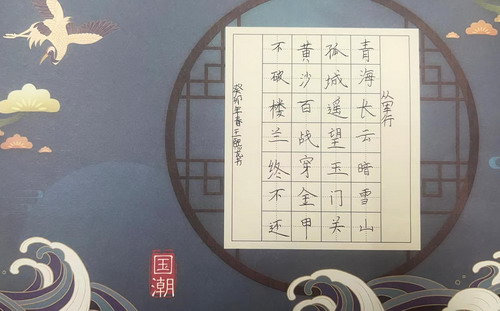 从军行
青海长云暗雪山
孤城遥望玉门关
黄沙百战穿金甲
不破楼兰终不还
癸卯年春王
国潮